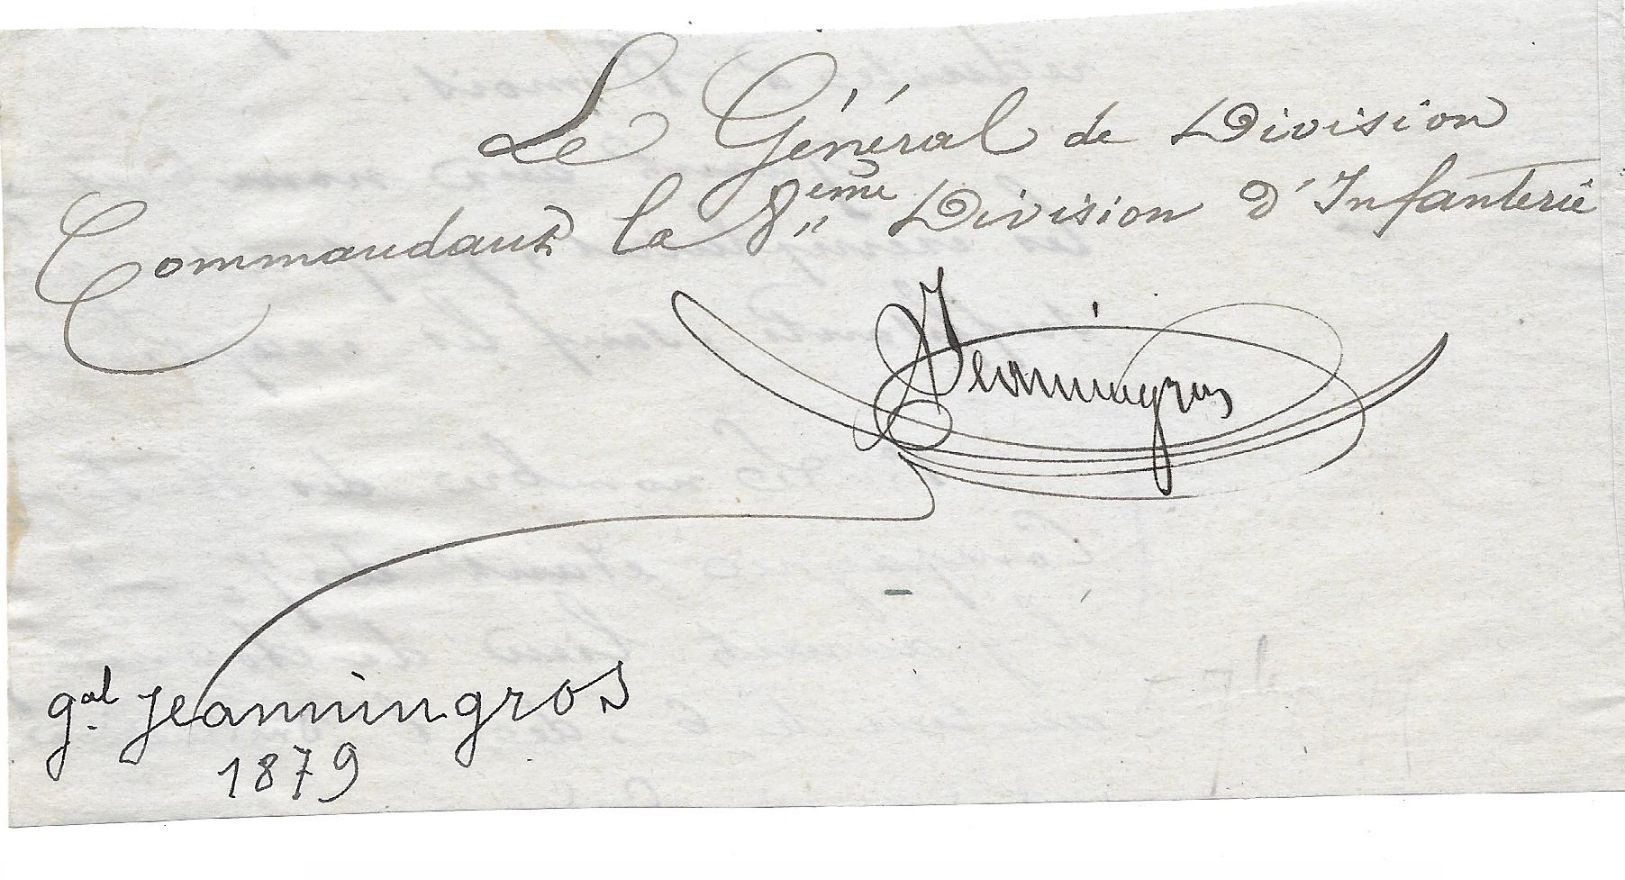 Le Général de Division
Commandant la 8ème Division d'Infanterie
Jeanningros
gal. Jeanningros
1879